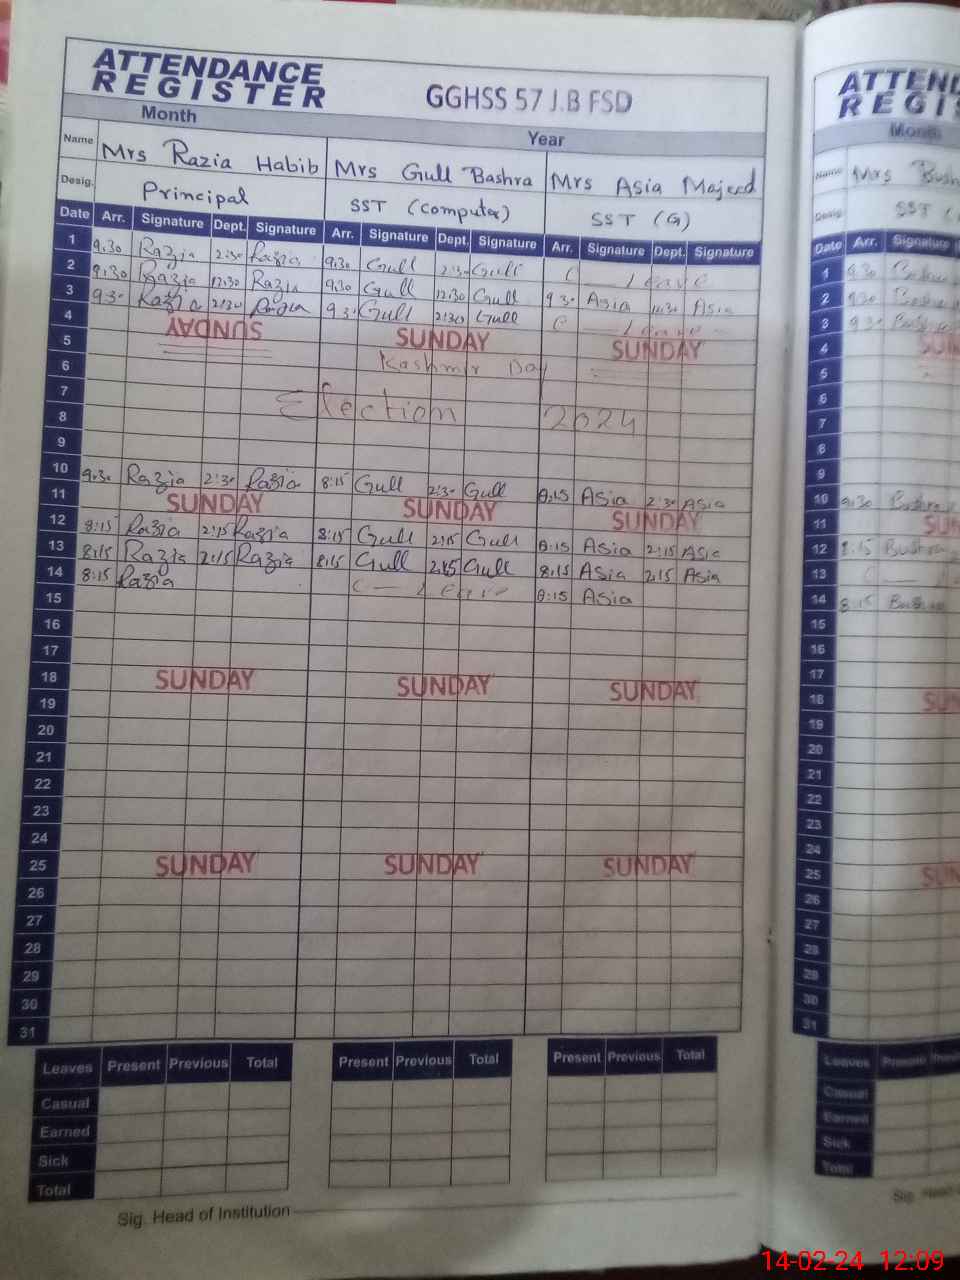 ATTENDANCE
REGISTER
GGHSS 57 J.B FSD
Month Year
Name Mrs Razia Habib Mrs Gull Bashra Mrs Asia Majeed
Desig. Principal SST (Computer) SST (G)
Date Arr. Signature Dept. Signature Arr. Signature Dept. Signature Arr. Signature Dept. Signature
1 9:30 Razia 2:30 Razia 9:30 Gull 2:30 Gull Leave
2 9:30 Razia 12:30 Razia 9:30 Gull 12:30 Gull 9:30 Asia 12:30 Asia
3 9:30 Razia 2:30 Razia 9:30 Gull 2:30 Gull Leave
4 SUNDAY SUNDAY SUNDAY
5 Kashmir Day
6
7 Election 2024
8
9
10 9:30 Razia 2:30 Razia 8:15 Gull 2:30 Gull 8:15 Asia 2:30 Asia
11 SUNDAY SUNDAY SUNDAY
12 8:15 Razia 2:15 Razia 8:15 Gull 2:15 Gull 8:15 Asia 2:15 Asia
13 8:15 Razia 2:15 Razia 8:15 Gull 2:15 Gull 8:15 Asia 2:15 Asia
14 8:15 Razia Leave 8:15 Asia
15
16
17
18 SUNDAY SUNDAY SUNDAY
19
20
21
22
23
24
25 SUNDAY SUNDAY SUNDAY
26
27
28
29
30
31
Leaves Present Previous Total Present Previous Total Present Previous Total
Casual
Earned
Sick
Total
Sig. Head of Institution
ATTEND
REGIS
Month
Name Mrs Bush
Desig. SST
Date Arr. Signature
1 9:30
2 9:30
3 9:30
4 SUN
5
6
7
8
9
10 9:30
11 SUN
12 8:15 Bushra
13
14 8:15
15
16
17
18 SUN
19
20
21
22
23
24
25 SUN
26
27
28
29
30
31
Leaves Present
Casual
Earned
Sick
Total
Sig. Head
14-02-24 12:09